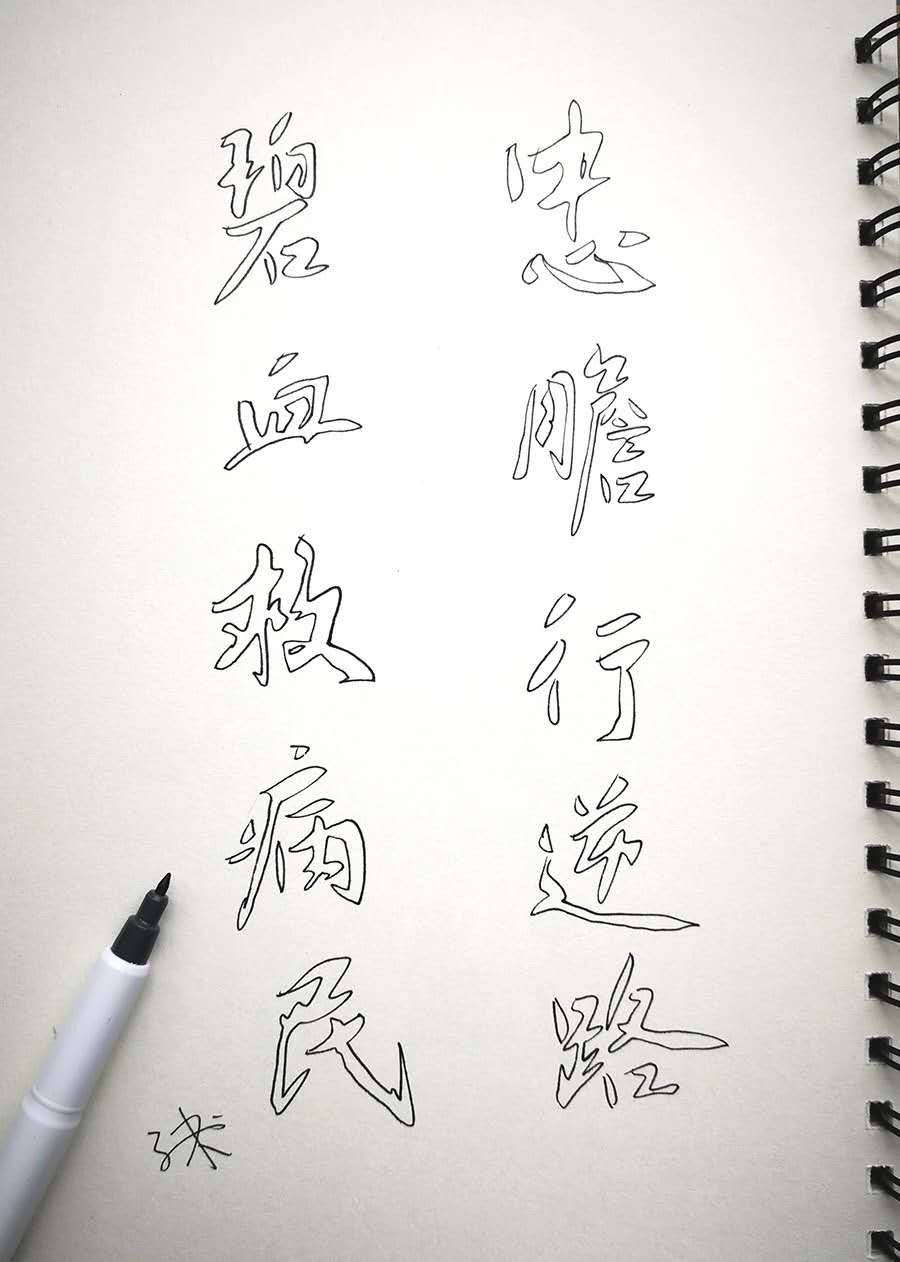 忠膽行逆路
碧血救病民